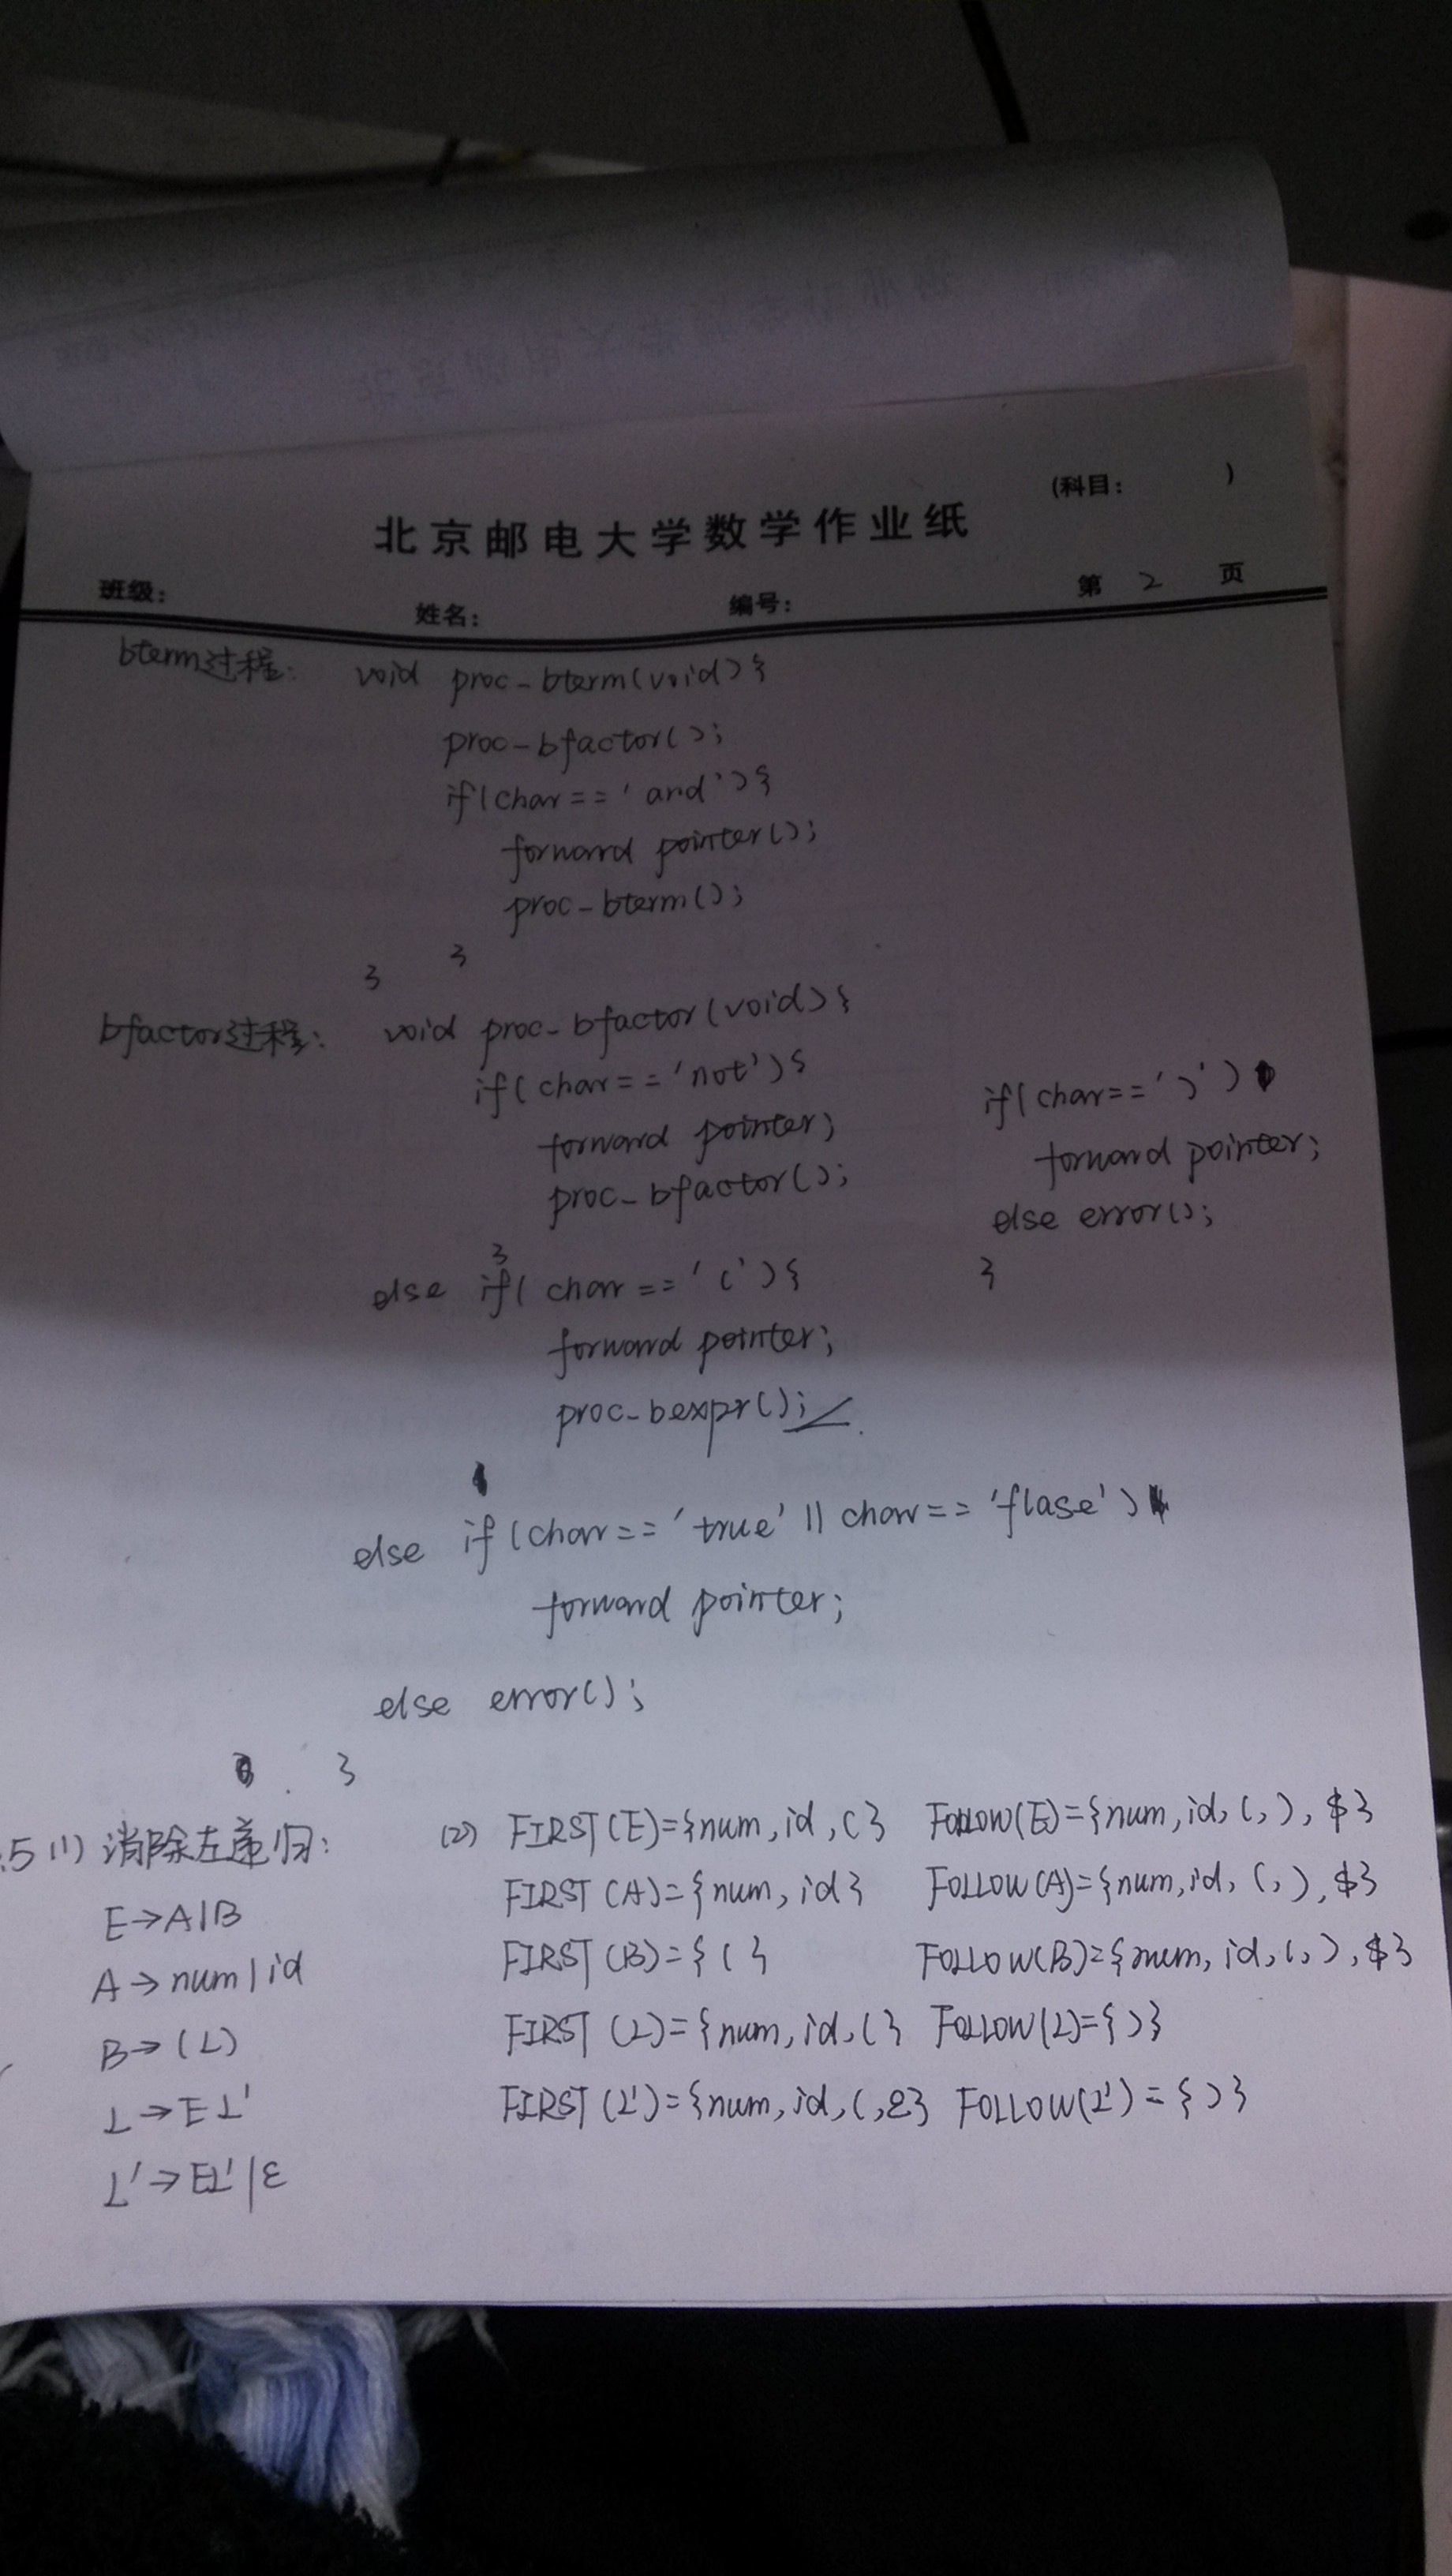 (科目: )
北京邮电大学数学作业纸
班级: 姓名: 编号: 第 2 页
bterm过程: void proc-bterm(void){
proc-bfactor();
if(char=='and'){
forward pointer();
proc-bterm();
}
}
bfactor过程: void proc-bfactor(void){
if(char=='not'){
forward pointer;
proc-bfactor();
}
else if(char=='('){
forward pointer;
proc-bexpr();
if(char==')')
forward pointer;
else error();
}
else if(char=='true'||char=='flase')
forward pointer;
else error();
}
.5 (1) 消除左递归:
E→A|B
A→num|id
B→(L)
L→EL'
L'→EL'|ε
(2) FIRST(E)={num,id,(} FOLLOW(E)={num,id,(,),$}
FIRST(A)={num,id} FOLLOW(A)={num,id,(,),$}
FIRST(B)={(} FOLLOW(B)={num,id,(,),$}
FIRST(L)={num,id,(} FOLLOW(L)={)}
FIRST(L')={num,id,(,ε} FOLLOW(L')={)}